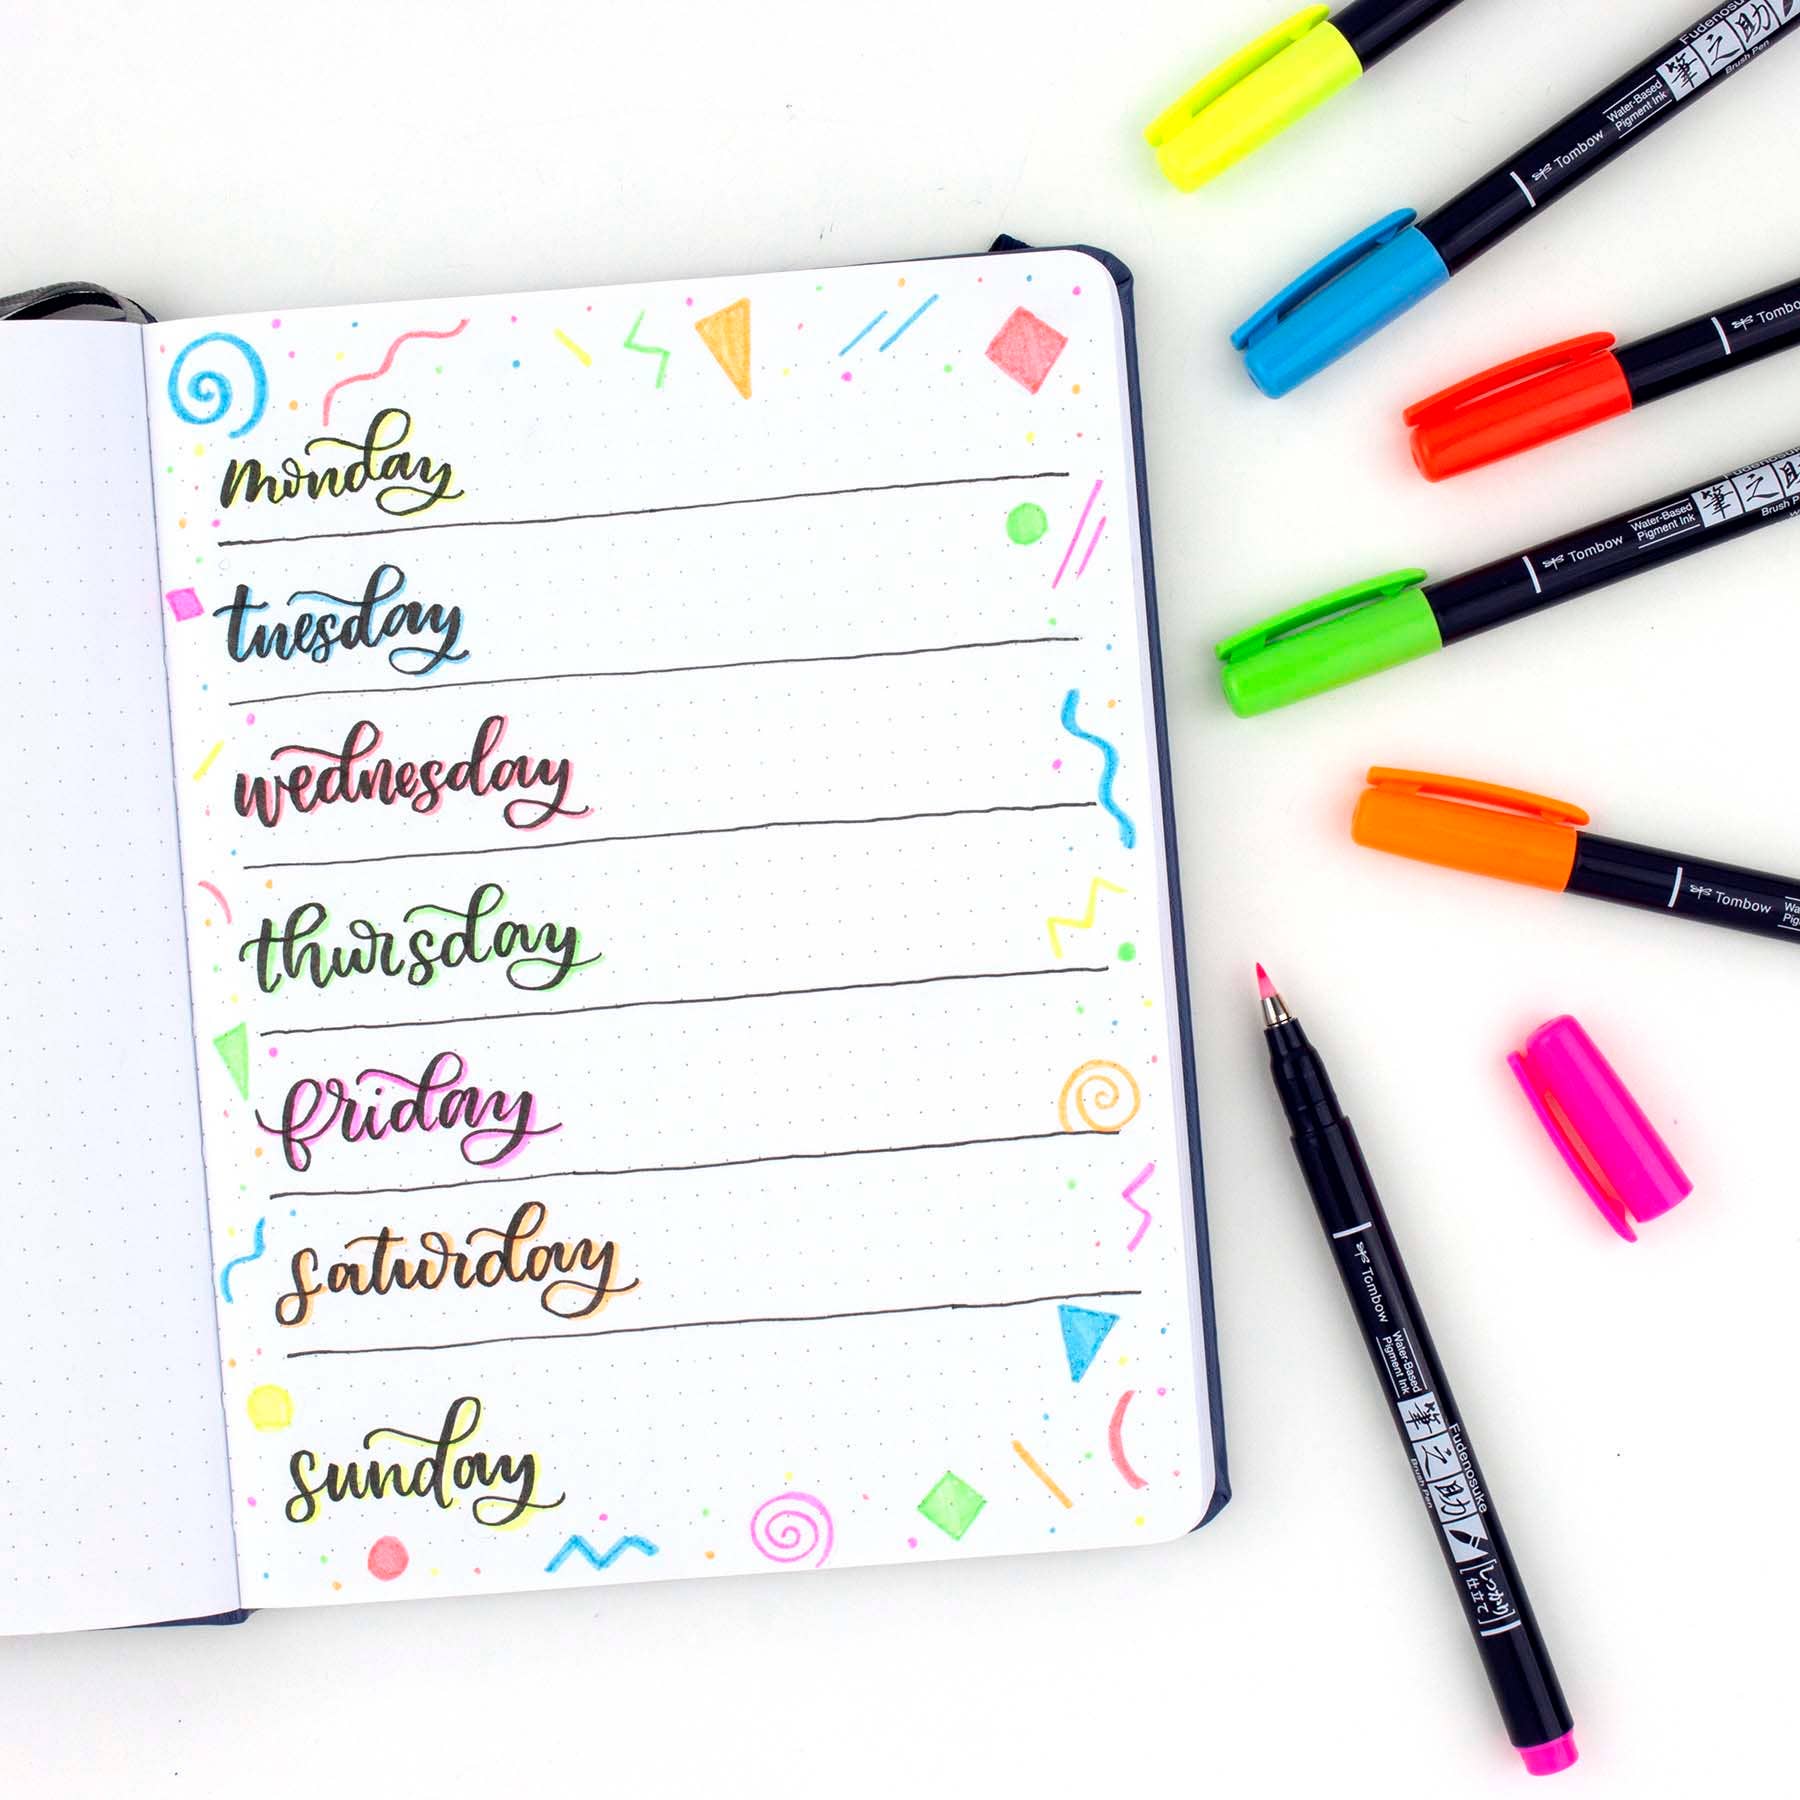 monday
tuesday
wednesday
thursday
friday
saturday
sunday
Tombow
Water-Based
Pigment Ink
筆之助
Fudenosuke
Brush Pen
Tombow
Tombow
Water-Based
Pigment Ink
筆之助
Fudenosuke
Brush Pen
Tombow
Tombow
Water-Based
Pigment Ink
筆之助
Fudenosuke
Brush Pen